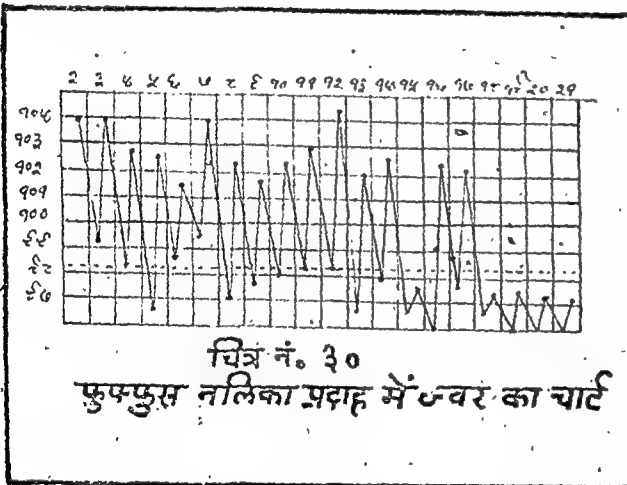 २ ३ ४ ५ ६ ७ ८ ९ १० ११ १२ १३ १४ १५ १६ १७ १८ १९ २० २१
१०४
१०३
१०२
१०१
१००
९९
९८
९७
चित्र नं. ३०
फुफ्फुस नलिका प्रदाह में ज्वर का चार्ट